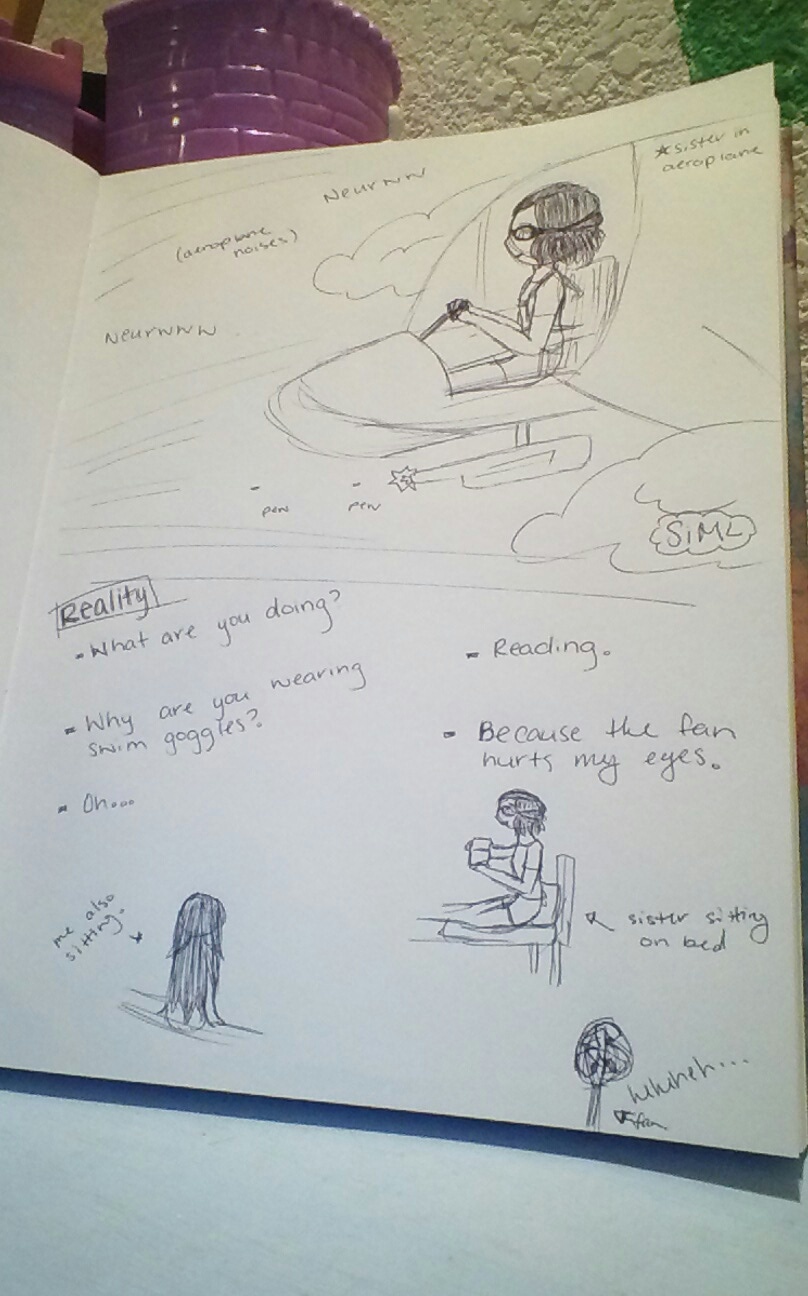 Neurnn
* sister in
aeroplane
(aeroplane
noises)
Neurnnn
pew
pew
SiML
Reality
- What are you doing?
- Reading.
- Why are you wearing
swim goggles?
- Because the fan
hurts my eyes.
- Oh...
me also
sitting.
sister sitting
on bed
fan